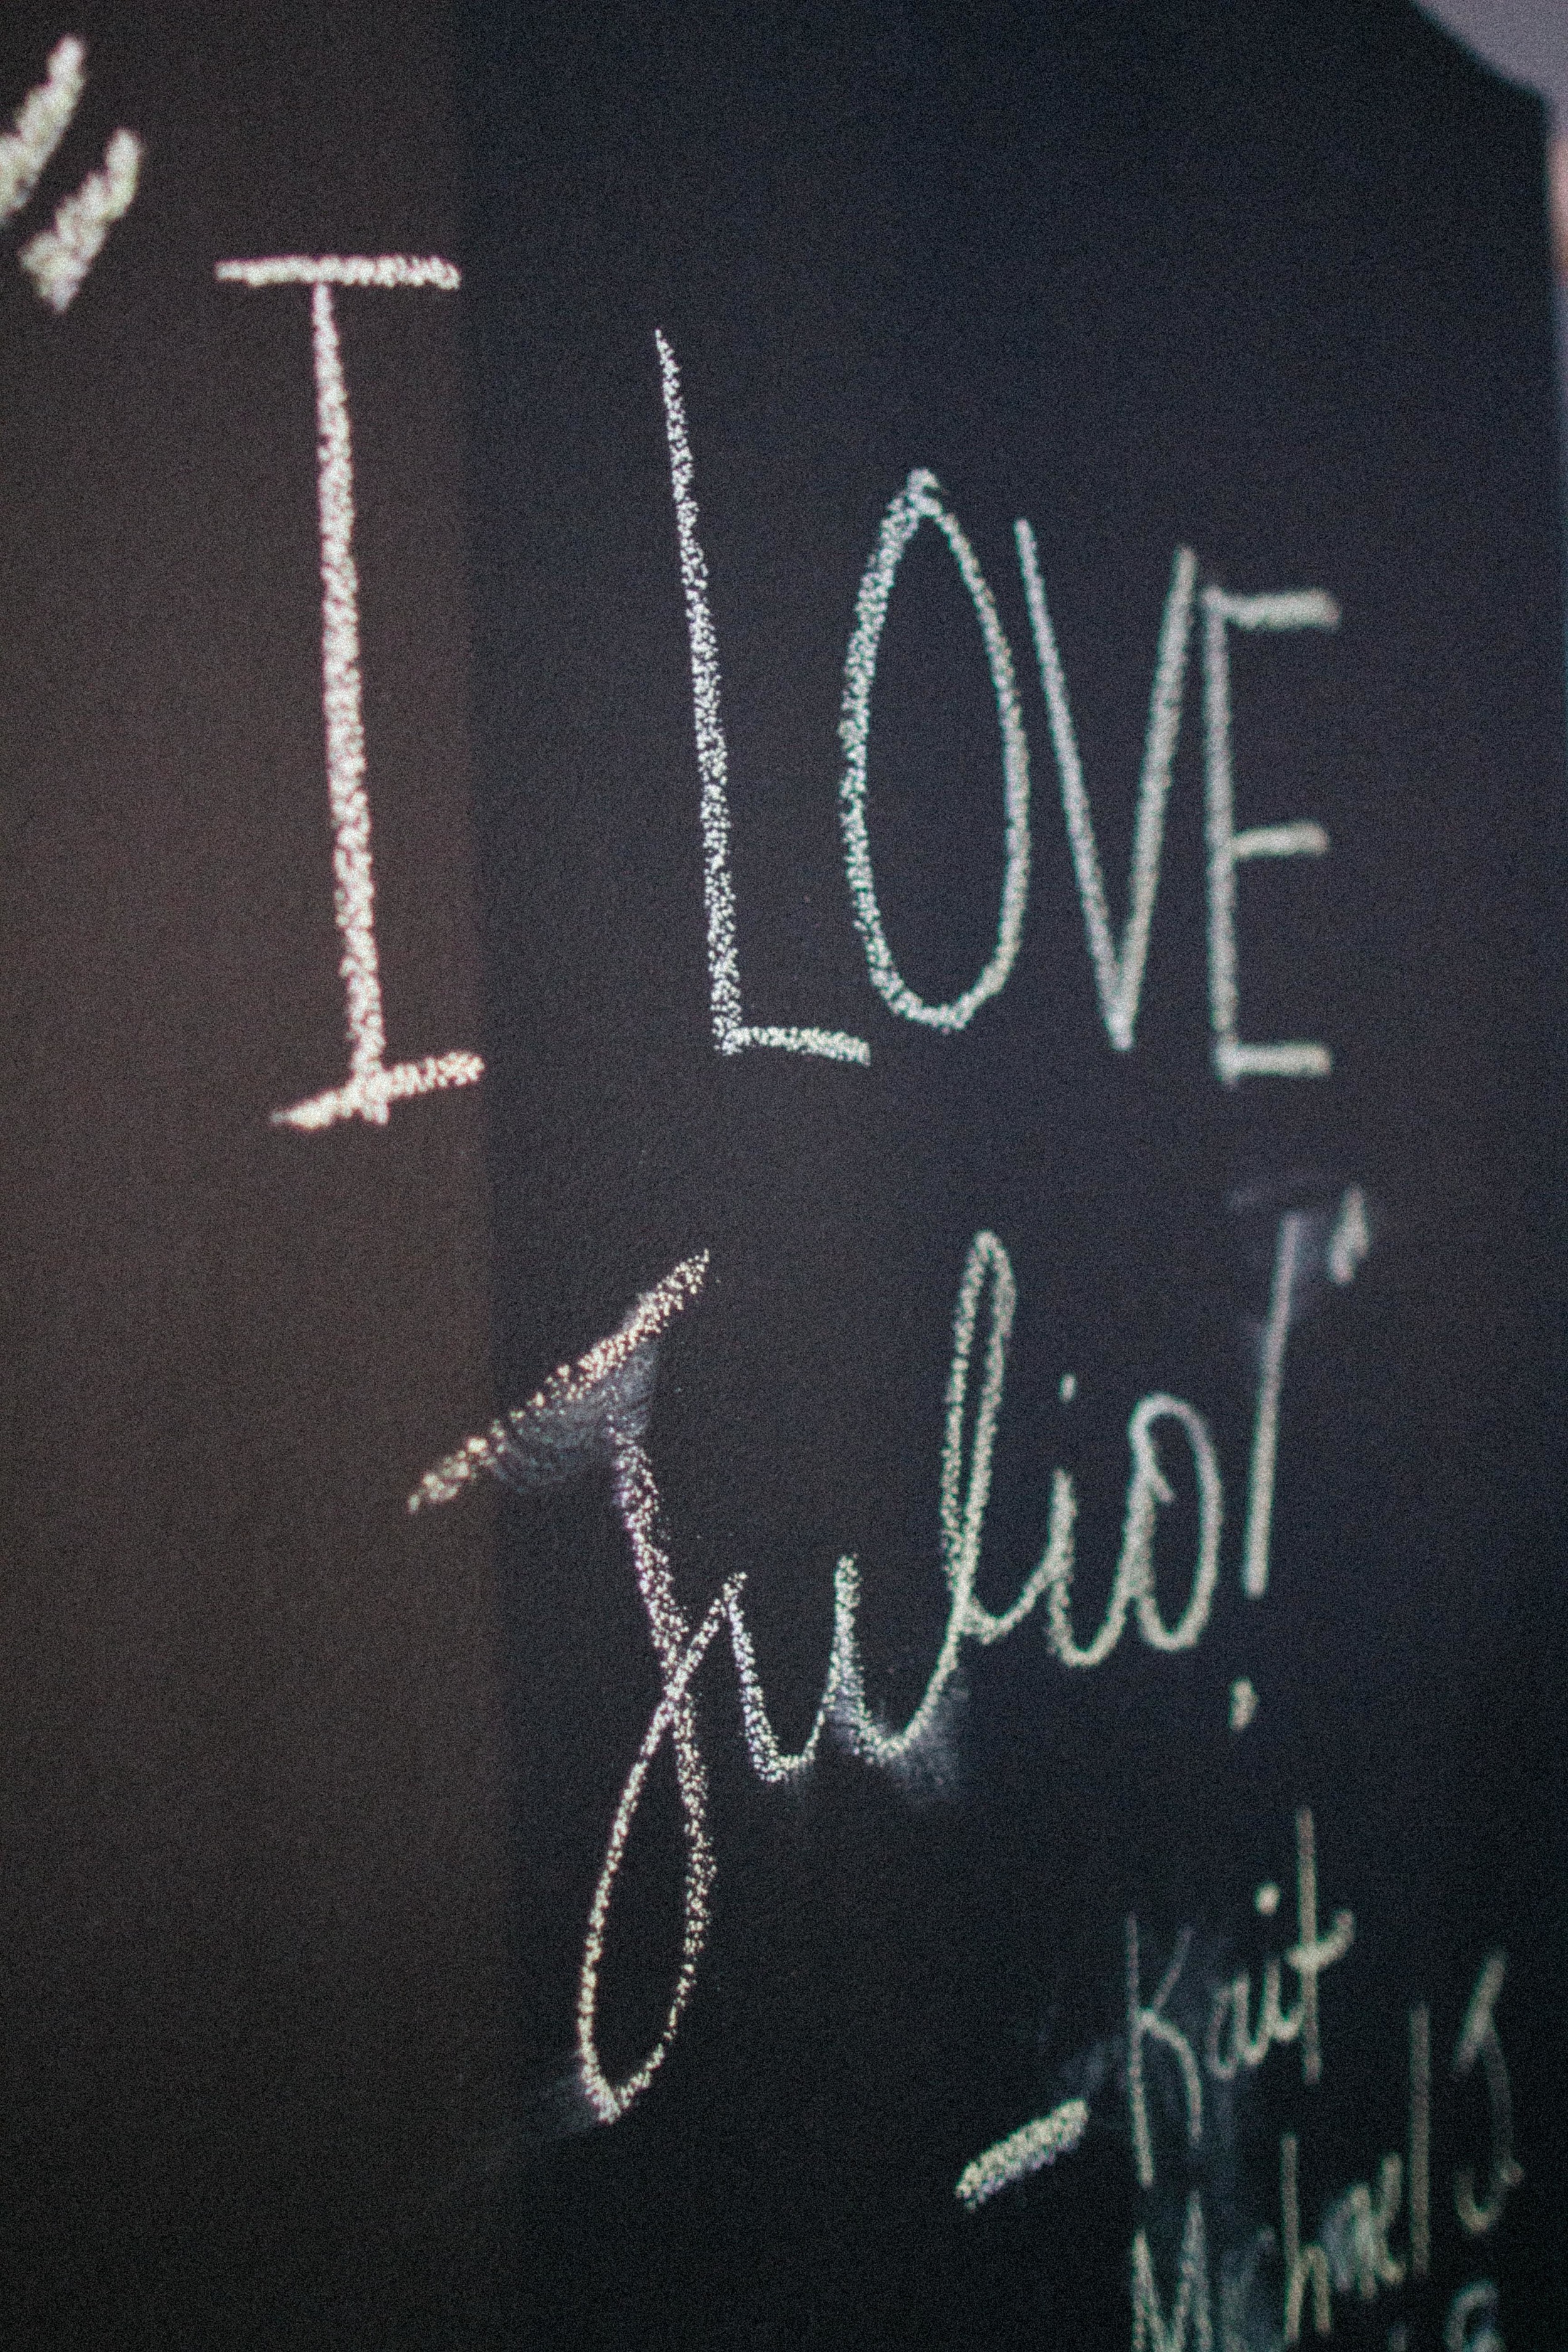 "I LOVE
Julio!"
- Kait
Michael J